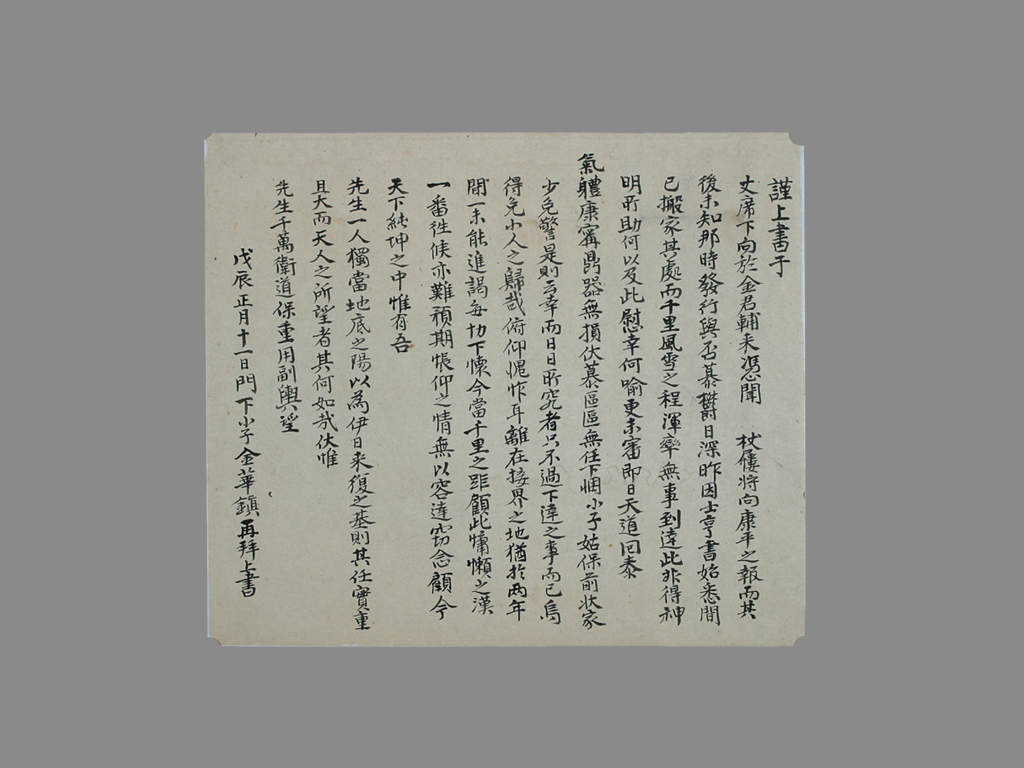 謹上書于
丈席下向於金君輔来憑聞 杖屨將向康平之報而其
後未知那時發行與否慕鬱日深昨因士亨書始悉間
已搬家其處而千里風雪之程渾率無事到達此非得神
明所助何以及此慰幸何喩更未審即日天道回泰
氣軆康寗鼎器無損伏慕區區無任下悃小子姑保前狀家
少免警是則云幸而日日所究者只不過下達之事而已烏
得免小人之歸哉俯仰愧怍耳離在接界之地猶於兩年
間一未能進謁每切下懷今當千里之距顧此慵懶之漢
一番徃候亦難預期悵仰之情無以容達窃念顧今
天下純坤之中惟有吾
先生一人獨當地底之陽以為伊日来復之基則其任實重
且大而天人之所望者其何如哉伏惟
先生千萬衛道保重用副輿望
戊辰正月十一日門下小子金華鎮再拜上書